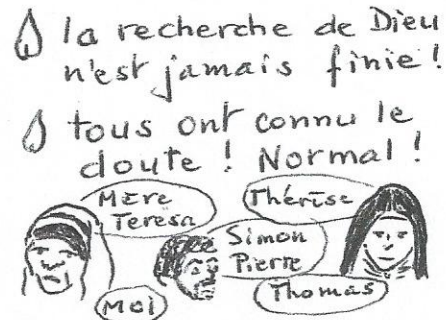 la recherche de Dieu
n'est jamais finie !
tous ont connu le
doute ! Normal !
Mère
Teresa
Thérèse
Simon
Pierre
Moi
Thomas